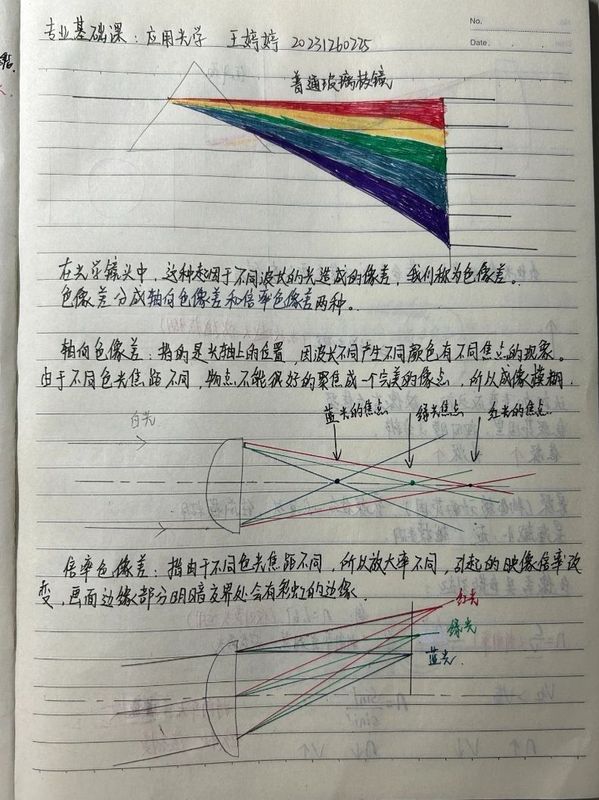 No.
Date.
专业基础课：应用光学 王婷婷 20231260225
普通玻璃棱镜
在光学镜头中，这种起因于不同波长的光造成的像差，我们称为色像差。
色像差分成轴向色像差和倍率色像差两种。
轴向色像差：指的是光轴上的位置，因波长不同产生不同颜色有不同焦点的现象。
由于不同色光焦距不同，物点不能很好的聚焦成一个完美的像点，所以成像模糊.
蓝光的焦点 绿光焦点 红光的焦点
白光
倍率色像差：指由于不同色光焦距不同，所以放大率不同，引起的映像倍率改
变，画面边缘部分明暗交界处会有彩虹的边缘.
红光
绿光
蓝光